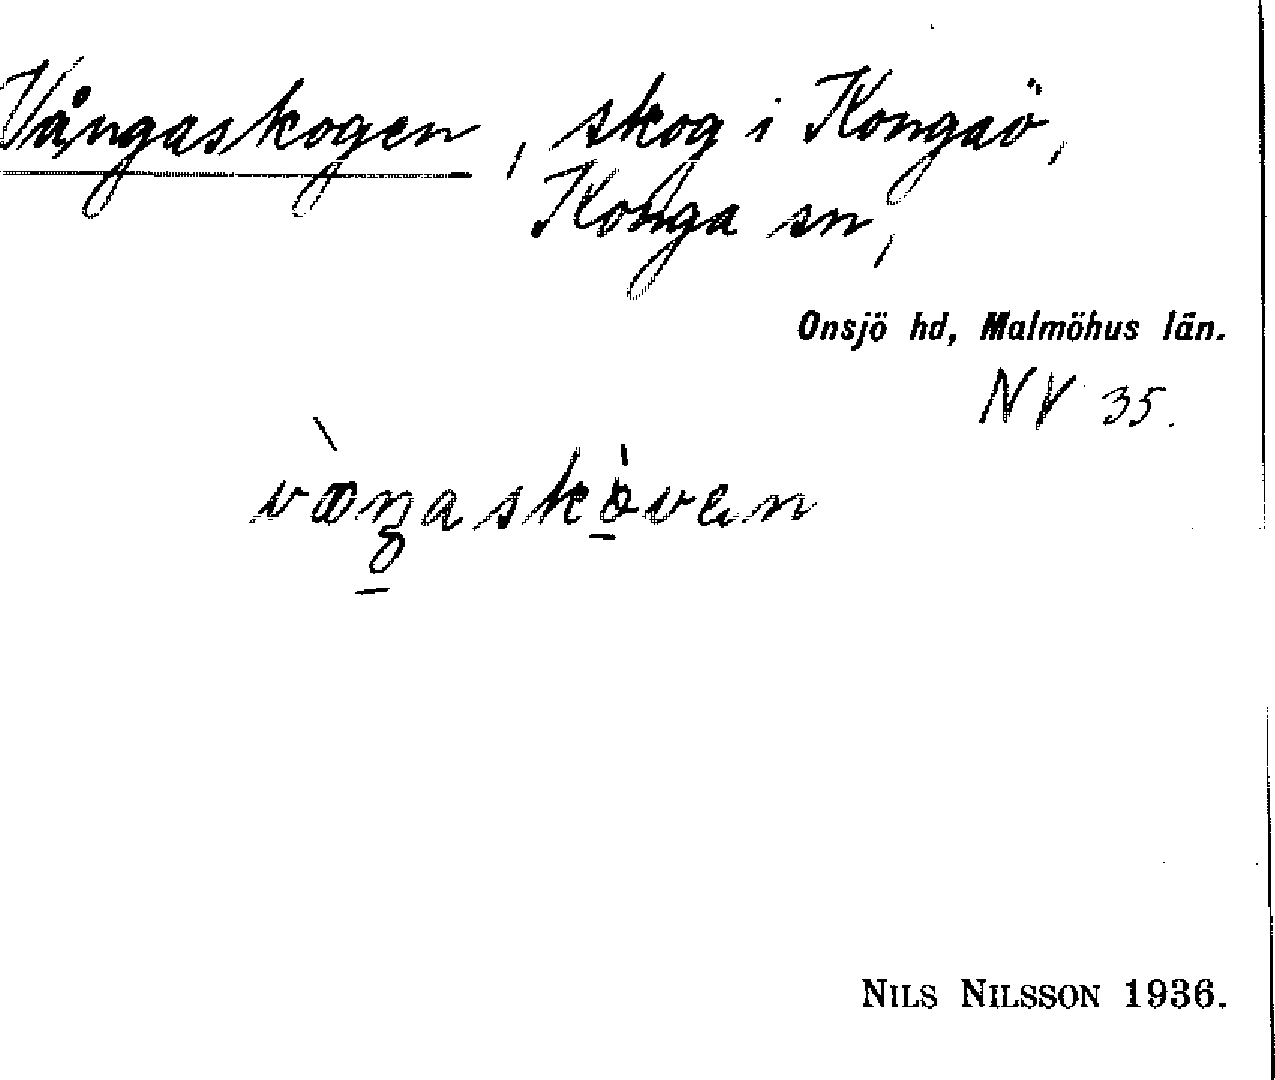 Vångaskogen, skog i Kongaö,
Konga sn,
Onsjö hd, Malmöhus län.
NV 35.
NILS NILSSON 1936.